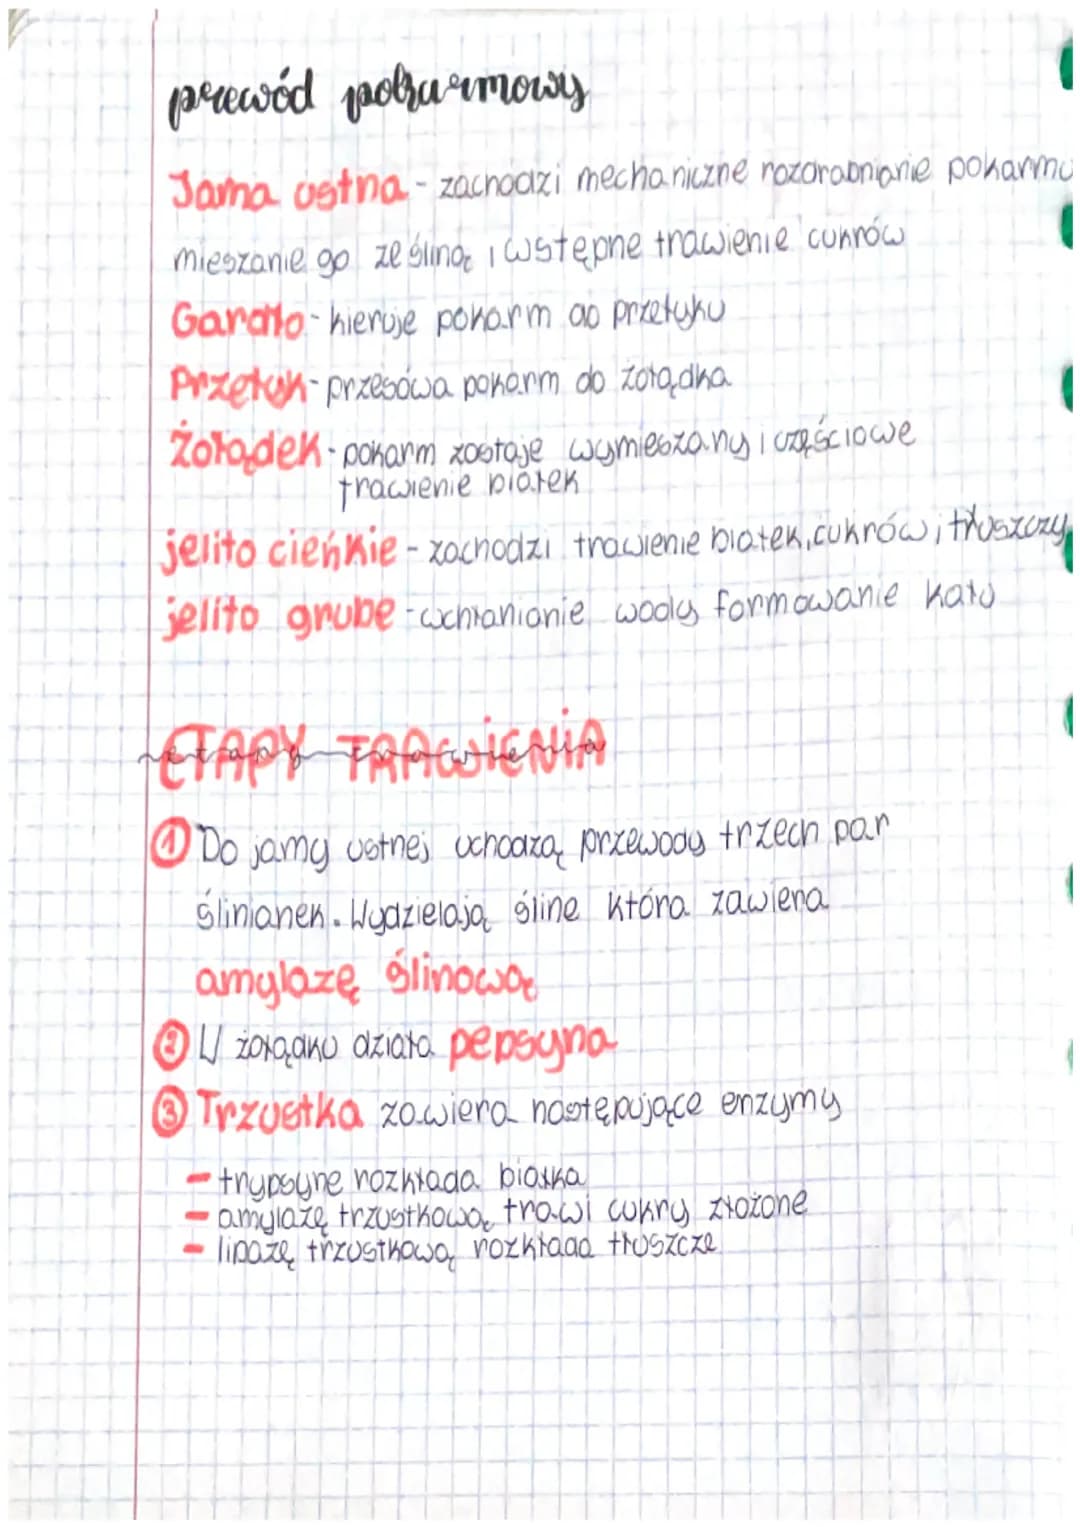 przewód pokarmowy
Jama ustna - zachodzi mechaniczne rozdrabnianie pokarmu
mieszanie go ze śliną i wstępne trawienie cukrów
Gardło - kieruje pokarm do przełyku
Przełyk - przesówa pokarm do żołądka
Żołądek - pokarm zostaje wymieszany i częściowe
trawienie białek
jelito cieńkie - zachodzi trawienie białek, cukrów i tłuszczy
jelito grube - wchłanianie wody formowanie kału
ETAPY TRAWIENIA
etapy trawienia
① Do jamy ustnej uchodzą przewody trzech par
ślinianek. Wydzielają śline która zawiera
amylazę ślinową
② W żołądku działa pepsyna
③ Trzustka zawiera następujące enzymy
- trypsyne rozkłada białka
- amylazę trzustkową trawi cukry złożone
- lipazę trzustkową rozkłada tłuszcze